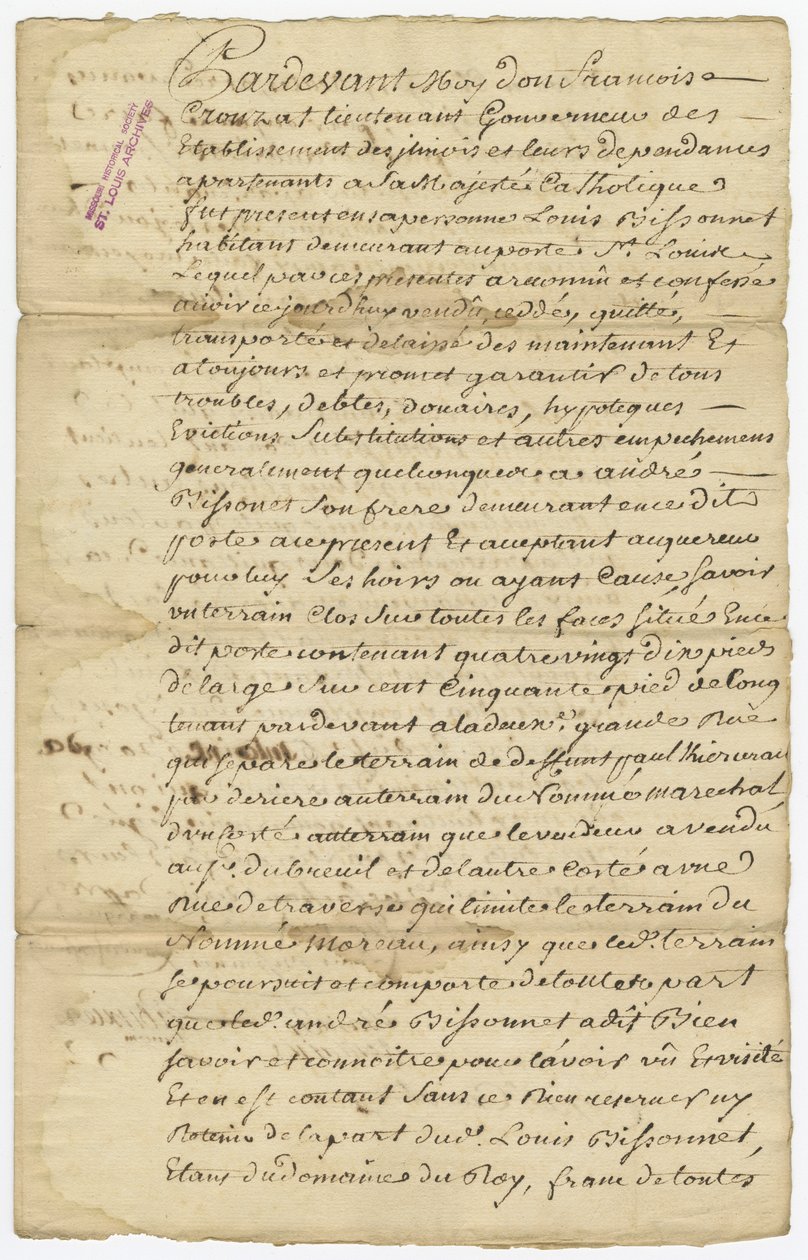 MISSOURI HISTORICAL SOCIETY
ST. LOUIS ARCHIVES
Pardevant Moy don francois
Crouzat lieutenant Gouverneur des
Etablissement des jlinois et leurs dependances
apartenants a Sa Majesté Catholique
fut present en sa personne Louis Bissonnet
habitant demeurant au poste St. Louis
Lequel par ces presentes a reconnû et confessé
avoir cejourdhuy vendû, ceddé, quitté,
transporté et delaissé des maintenant Et
atoujours et promet garantir de tous
troubles, debtes, douaires, hypoteques
Evictions Substitutions et autres empechemens
generaliment quelconques a andré
Bissonet Son frere demeurant en ce dit
poste a ce present Et aceptant aquereur
pour luy Ses hoirs ou ayant Cause Savoir
vn terrain Clos Sur toutes les faces Situé En ce
dit poste contenant quatre vingt dix pieds
de large Sur cent Cinquante pied de long
tenant pardevant a la deuxe. grande Rüe
qui separe le terrain de deffunt paul Kiercerau
par deriere au terrain du Nommé marechal
d'vn Costé au terrain que le vendeur a vendu
au Sr. dubreuil et de lautre Costé a vne
Rüe de traverse qui limite le terrain du
Nommé Moreau, ainsy que led. terrain
se poursuit et comporte de toute part
que led. andré Bissonnet a dit Bien
savoir et connoitre pour lavoir vû Et visité
Et en est contant Sans ce Rien reserver ny
Retenir de la part dud. Louis Bissonnet,
Etant du domaine du Roy, franc de toutes